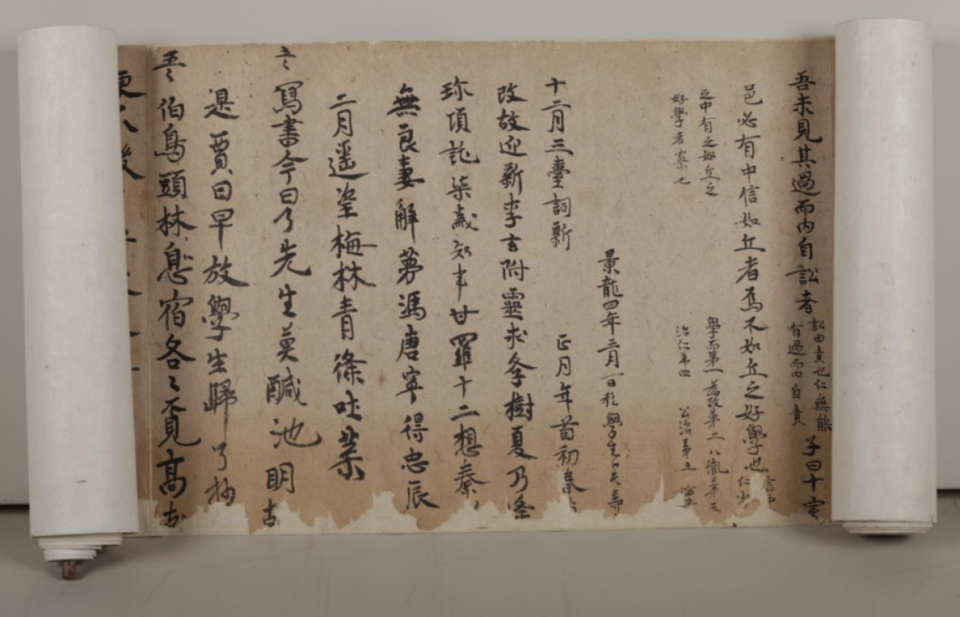 吾未見其過而內自訟者 訟由責也仁無能有過而內自責 子曰十室
邑必有中信如丘者焉不如丘之好學也
之中有之如丘之
好學者寡也
學而第一 為政第二 八佾第三
治仁第四 公治第五
景龍四年二月一日於學
十二月三臺詞新 正月年首初春
改故迎新李玄附靈求學樹夏乃
珎項託柒歲知事甘羅十二想秦
無良妻解夢馮唐寧得忠辰
二月遥望梅林青條吐葉
寫書今日了先生莫醎池明
是賈日早放學生歸了抄
伯鳥頭林息宿各々覓高